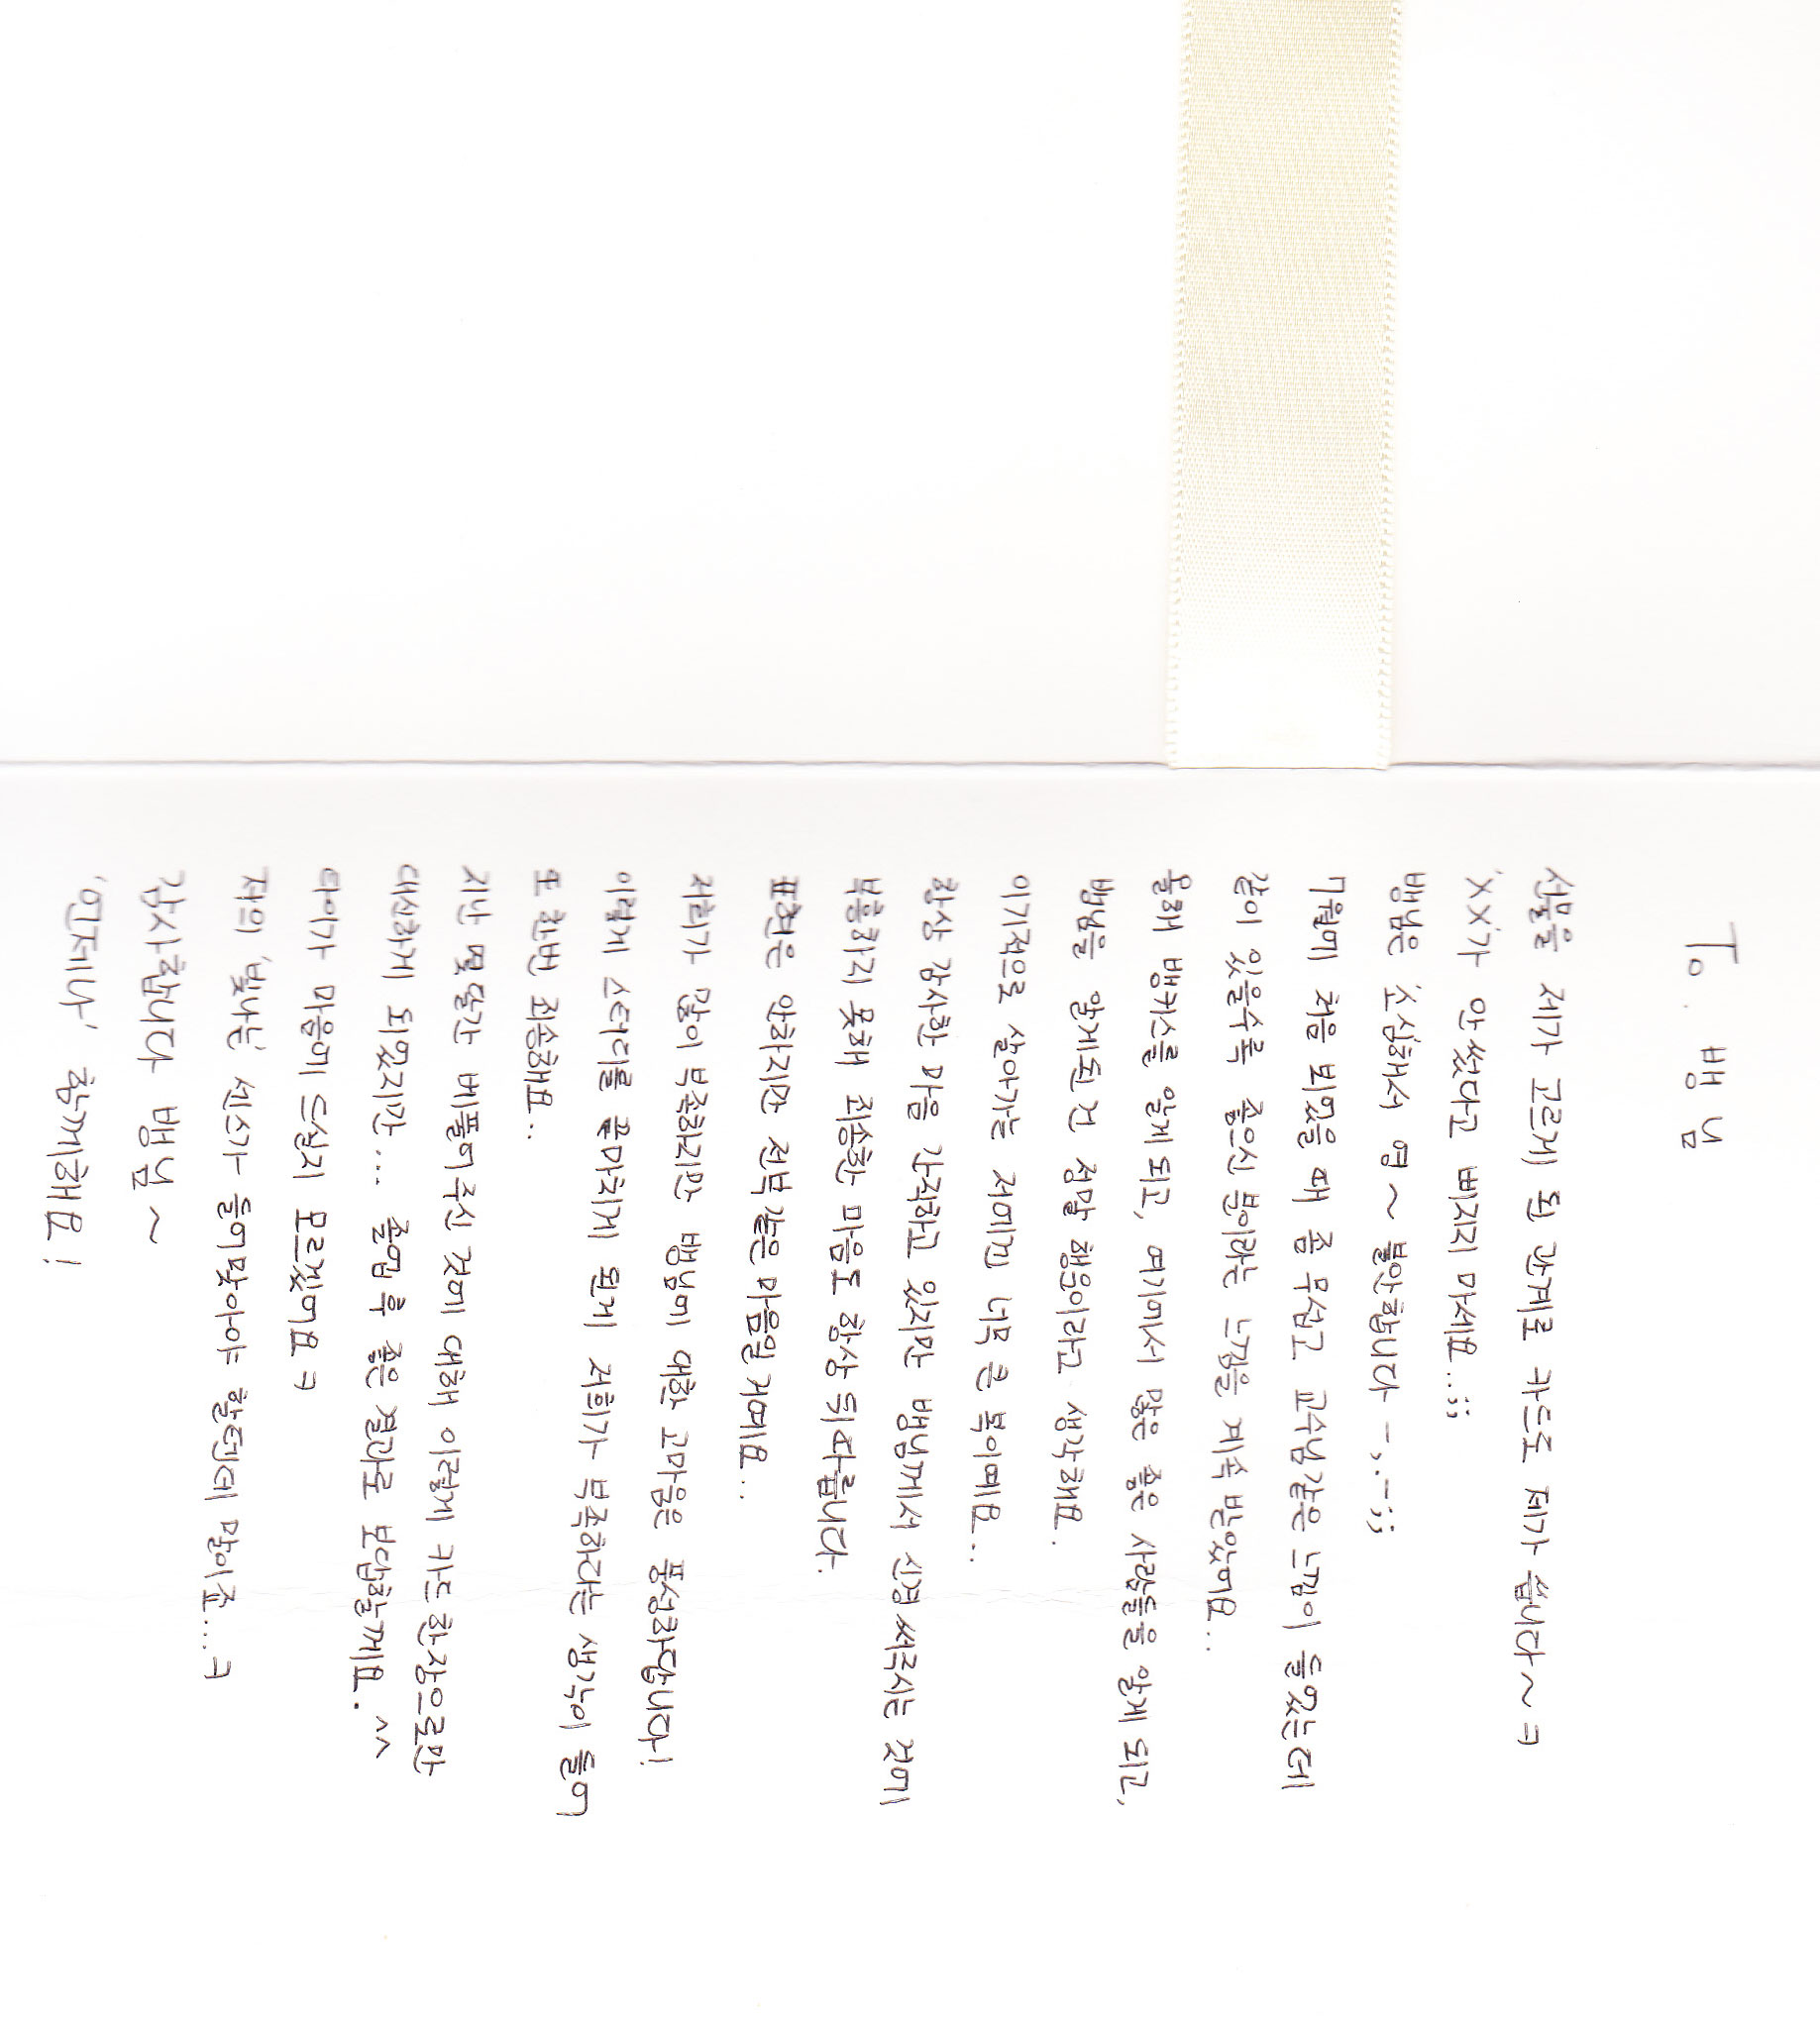 To. 뱅님
선물을 제가 고르게 된 관계로 카드도 제가 씁니다~ㅋ
'XX'가 안 썼다고 삐지지 마세요..;;
뱅님은 '소심'해서 영~ 불안합니다 -,.-;;
7월에 처음 뵈었을 때 좀 무섭고 교수님같은 느낌이 들었는데
같이 있을수록 좋으신 분이라는 느낌을 계속 받았어요...
올해 뱅커스를 알게되고, 여기에서 많은 좋은 사람들을 알게 되고,
뱅님을 알게된건 정말 행운이라고 생각해요.
이기적으로 살아가는 저에겐 너무 큰 복이에요...
항상 감사한 마음 간직하고 있지만 뱅님께서 신경써주시는 것에
부응하지 못해 죄송한 마음도 항상 뒤따릅니다.
표현은 안하지만 전부 같은 마음일 거에요...
저희가 많이 부족하지만 뱅님에 대한 고마움은 풍성하답니다!
이렇게 스터디를 끝마치게 된게 저희가 부족하다는 생각이 들어
또 한번 죄송해요..
지난 몇달간 베풀어주신 것에 대해 이렇게 카드 한장으로만
대신하게 되었지만... 졸업 후 좋은 결과로 보답할께요. ^^
타이가 마음에 드실지 모르겠어요 ㅋ
저의 '빛나는' 센스가 들어맞아야 할텐데 말이죠....ㅋ
감사합니다 뱅님~
'언제나' 함께해요!